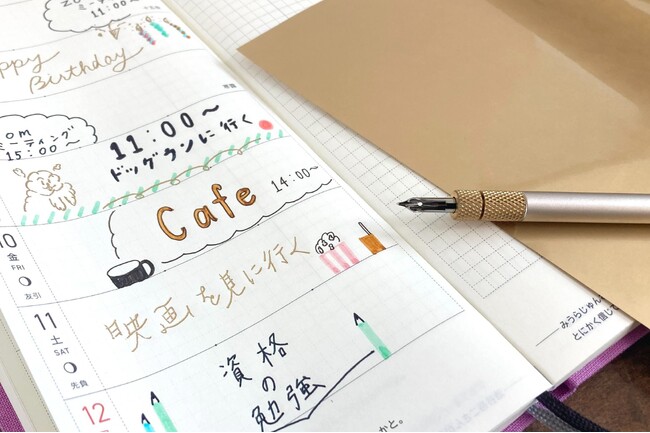 11:00~
ppy
Birthday
om
ミーティング
15:00~
11:00~
ドッグランに行く
Cafe
14:00~
10
金
FRI
友引
映画を見に行く
11
土
SAT
先負
資格
の
勉強
12
かと。
——みうらじゅん
とにかく信じて